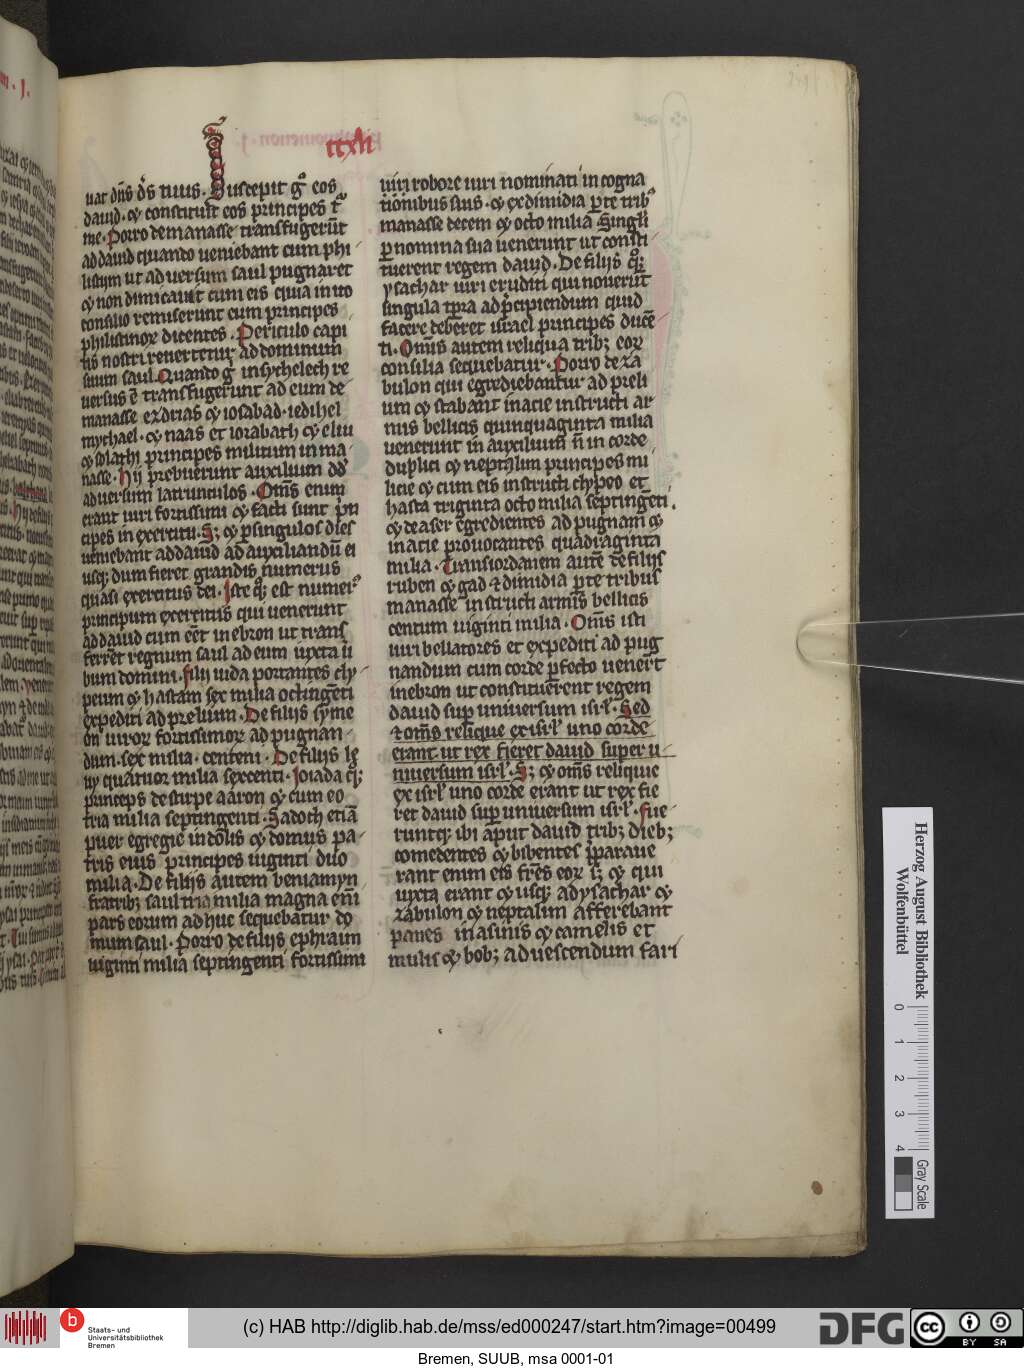 ccxlii
uat dn̄s ds̄ tuus. Suscepit gͦ eos
dauid. et constituit eos principes t̉
me. Porro de manasse transfugerūt
ad dauid quando ueniebant cum phi
listijm ut aduersum saul pugnaret
et non dimicauit cum eis quia inito
consilio remiserunt eum principes
philistinoꝝ dicentes. Periculo capi
tis nostri reuertetur ad dominum
suum saul. Quando gͦ in sychelech re
uersus ē transfugerunt ad eum de
manasse ezdrias et iosabad. iedihel
mychael. et naas et iorabath et eliu
et solathi principes militum in ma
nasse. Hij prebuerunt auxilium dd̄
aduersum latrunculos. Om̄s enim
erant uiri fortissimi et facti sunt prī
cipes in exercitu. Sꝫ et ꝑ singulos dies
ueniebant ad dauid ad auxiliandū ei
usqꝫ dum fieret grandis numerus
quasi exercitus dei. Iste qꝫ est numerꝰ
principum exercitus qui uenerunt
ad dauid cum eēt in ebron ut trans
ferret regnum saul ad eum iuxta ū
bum domini. filij iuda portantes cly
peum et hastam sex milia octingēti
expediti ad prelium. De filijs syme
on uiroꝝ fortissimoꝝ ad pugnan
dum. sex milia. centeni. De filijs le
uy quatuor milia sexcenti. Ioiada qꝫ
princeps de stirpe aaron et cum eo
tria milia septingenti. Sadoch etiā
puer egregie indolis et domus pa
tris eius principes uiginti duo
milia. De filijs autem beniamyn
fratribꝫ saul tria milia magna enī
pars eorum adhuc sequebatur do
mum saul. Porro de filijs ephraim
uiginti milia septingenti fortissimi
uiri robore uiri nominati in cogna
tionibus suis. et ex dimidia ꝑte tribꝰ
manasse decem et octo milia Singli
ꝑ nomina sua uenerunt ut consti
tuerent regem dauid. De filijs qꝫ
ysachar uiri eruditi qui nouerūt
singula tp̄ra ad p̄cipiendum quid
facere deberet israel principes ducē
ti. Om̄is autem reliqua tribꝫ eoꝝ
consilia sequebatur. Porro de za
bulon qui egrediebantur ad preli
um et stabant in acie instructi ar
mis bellicis quinquaginta milia
uenerunt in auxilium n̄ in corde
duplici et neptalim principes mi
licie et cum eis instructi clypeo et
hasta triginta octo milia septingēti.
et de aser egredientes ad pugnam et
in acie prouocantes quadraginta
milia. Transiordanem autē de filijs
ruben et gad et dimidia ꝑte tribus
manasse instructi armis bellicis
centum uiginti milia. Om̄is isti
uiri bellatores et expediti ad pug
nandum cum corde ꝑfecto uenert
in ebron ut constituerent regem
dauid sup uniuersum isrl̄. Sed
et om̄s relique ex isrl̄ uno corde
erant. ut rex fieret dauid super u
niuersum isrl̄. Sꝫ et om̄s reliquie
ex isrl̄ uno corde erant ut rex fie
ret dauid sup uniuersum isrl̄. fue
runtqꝫ ibi aput dauid tribꝫ diebꝫ
comedentes et bibentes p̄paraue
rant enim eis fr̄es eoꝝ sꝫ et qui
iuxta erant et usqꝫ ad ysachar et
zabulon et neptalim afferebant
panes in asinis et camelis et
mulis et bobꝫ ad uescendum fari
Herzog August Bibliothek
Wolfenbüttel
0 1 2 3 4
Gray Scale
Staats- und
Universitätsbibliothek
Bremen
(c) HAB http://diglib.hab.de/mss/ed000247/start.htm?image=00499
DFG
cc BY SA
Bremen, SUUB, msa 0001-01